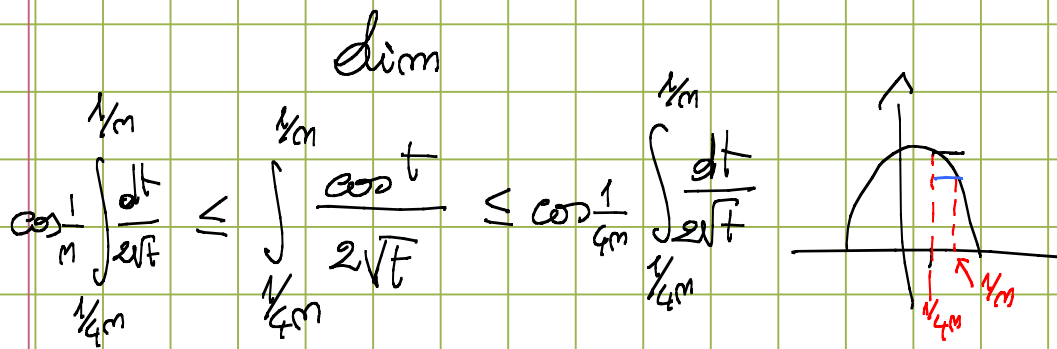 dim
cos 1/n ∫_{1/4n}^{1/n} dt/2√t ≤ ∫_{1/4n}^{1/n} cos t/2√t ≤ cos 1/4n ∫_{1/4n}^{1/n} dt/2√t
1/4n 1/n